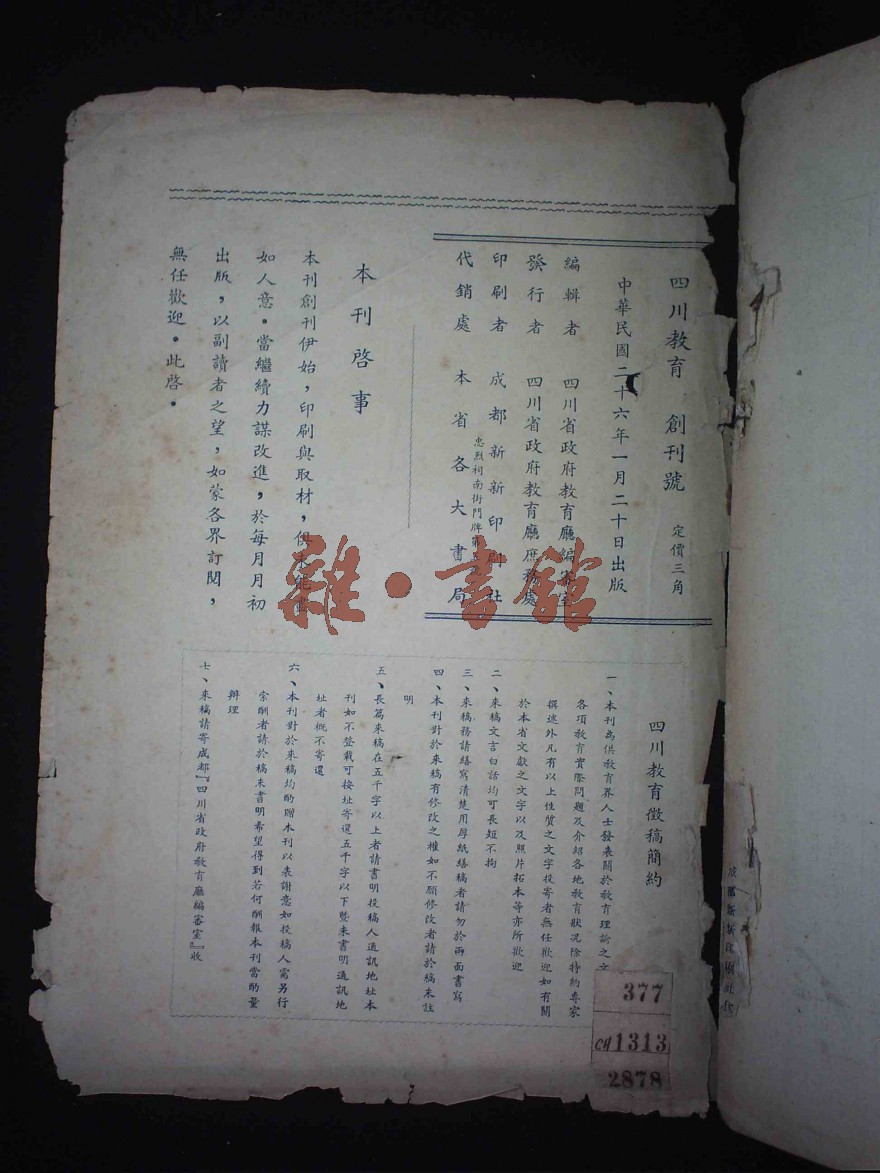 四川教育 創刊號 定價三角
中華民國二十六年一月二十日出版
編輯者 四川省政府教育廳編審室
發行者 四川省政府教育廳庶務處
印刷者 成都新新印刷社
忠烈祠南街門牌
代銷處 本省各大書局
本刊啓事
本刊創刊伊始，印刷與取材，俱未能盡
如人意。當繼續力謀改進，於每月月初
出版，以副讀者之望，如蒙各界訂閱，
無任歡迎。此啓。
四川教育徵稿簡約
一、本刊為供教育界人士發表關於教育理論之文
各項教育實際問題及介紹各地教育狀況除特約專家
撰述外凡有以上性質之文字投寄者無任歡迎如有關
於本省文獻之文字以及照片拓本等亦所歡迎
二、來稿文言白話均可長短不拘
三、來稿務請繕寫清楚用厚紙繕稿者請勿於兩面書寫
四、本刊對於來稿有修改之權如不願修改者請於稿末註
明
五、長篇來稿在五千字以上者請書明投稿人通訊地址本
刊如不登載可按址寄還五千字以下曁未書明通訊地
址者概不寄還
六、本刊對於來稿均酌贈本刊以表謝意如投稿人需另行
索酬者請於稿末書明希望得到若何酬報本刊當酌量
辦理
七、來稿請寄成都『四川省政府教育廳編審室』收
377
CH1313
2878
雜·書館
成都新新印刷社代